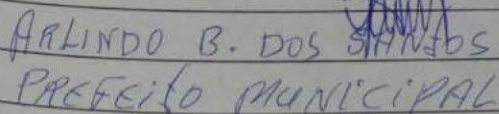 ARLINDO B. DOS SANTOS
PREFEITO MUNICIPAL